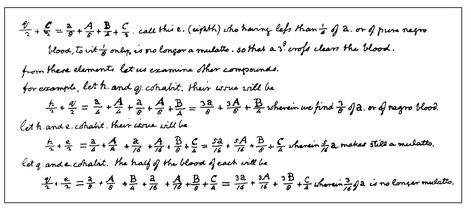 q/2 + C/2 = a/8 + A/8 + B/4 + C/2. call this e. (eighth) who having less than 1/4 of a. or of pure negro
blood, to wit 1/8 only, is no longer a mulatto. so that a 3d cross clears the blood.
from these elements let us examine other compounds.
for example, let h. and q. cohabit. their issue will be
h/2 + q/2 = a/4 + A/4 + a/8 + A/8 + B/4 = 3a/8 + 3A/8 + B/4 wherein we find 3/8 of a. or of negro blood.
let h. and e. cohabit. their issue will be
h/2 + e/2 = a/4 + A/4 + a/16 + A/16 + B/8 + C/4 = 5a/16 + 5A/16 + B/8 + C/4 wherein 5/16 a. makes still a mulatto.
let q. and e. cohabit. the half of the blood of each will be
q/2 + e/2 = a/8 + A/8 + B/4 + a/16 + A/16 + B/8 + C/4 = 3a/16 + 3A/16 + 3B/8 + C/4 wherein 3/16 of a is no longer mulatto.